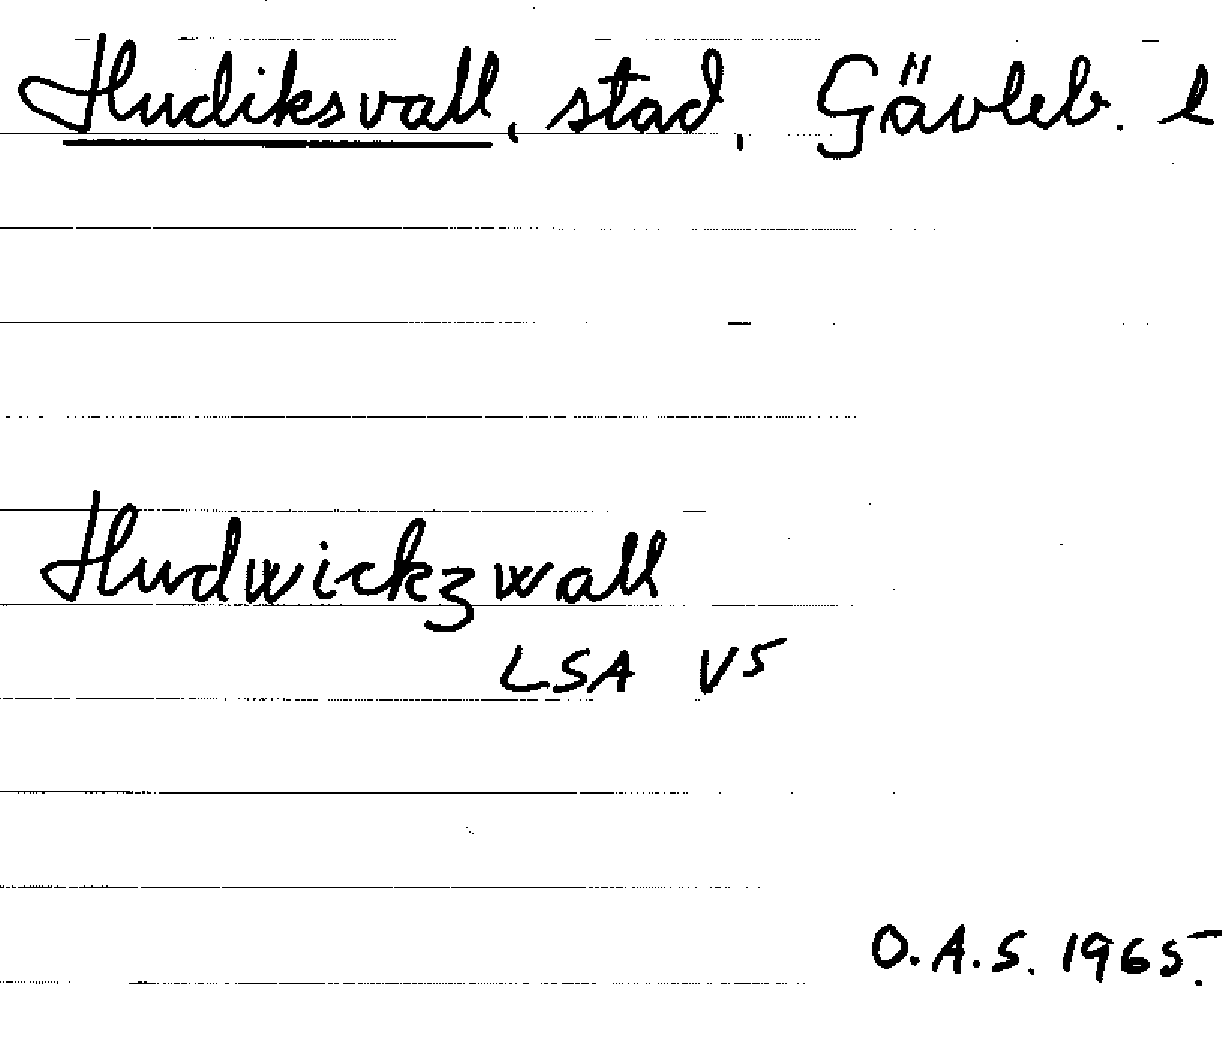 Hudiksvall, stad, Gävleb. l
Hudwickzwall
LSA V5
O.A.S. 1965.